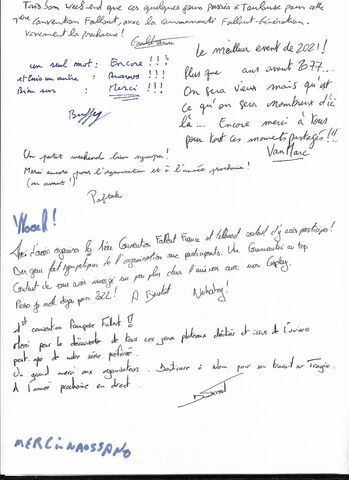 Très bon week-end que ces quelques jours passés à Toulouse pour cette
1ère Convention Fallout, avec la communauté Fallout-Génération.
Vivement la prochaine !
un seul mot : Encore !!!
et puis un autre : Bravos !!!
Bien sur : Merci !!!
Le meilleur event de 2021 !
Plus que ans avant 2077...
On sera vieux mais qu'est
ce qu'on sera nombreux d'ici
là... Encore merci à tous
pour tout ces moments partagés !!!
VanMarc
Un petit weekend bien sympa !
Merci encore pour l'organisation et à l'année prochaine !
(ou avant !)
Woouh !
Merci d'avoir organisé la 1ère Convention Fallout France et content d'y avoir participer !
Des gens fort sympathiques de l'organisation aux participants. Une Communauté au top
Content de vous avoir immergé un peu plus dans l'univers avec mon Cosplay.
Prenez pour moi déjà pour 2022 ! A Bientot
1st convention française Fallout !!
Merci pour la découverte de tous ces jeux plateaux dérivées et issus de l'univers
post-apo de notre série préférée.
Un grand merci aux organisateurs. Dédicace à Naossano pour son travail sur
A l'année prochaine en direct.
MERCI NAOSSANO